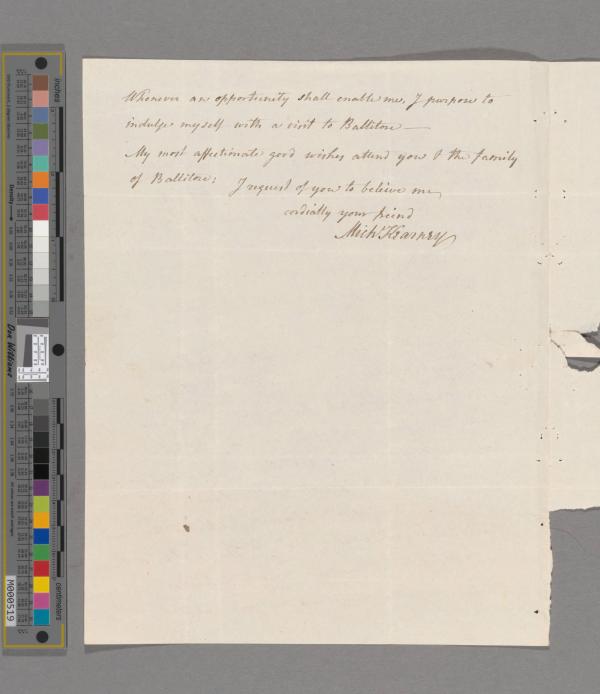 Whenever an opportunity shall enable me, I purpose to
indulge myself with a visit to Ballitore —
My most affectionate good wishes attend you & the family
of Ballitore: I request of you to believe me
cordially your friend
Mich Kearney
inches
Density
Don Williams
M000519
centimeters